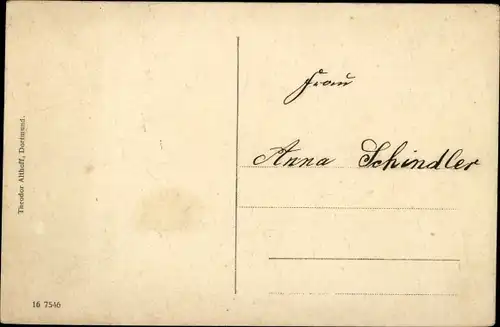 Theodor Althoff, Dortmund.
16 7546
Frau
Anna Schindler